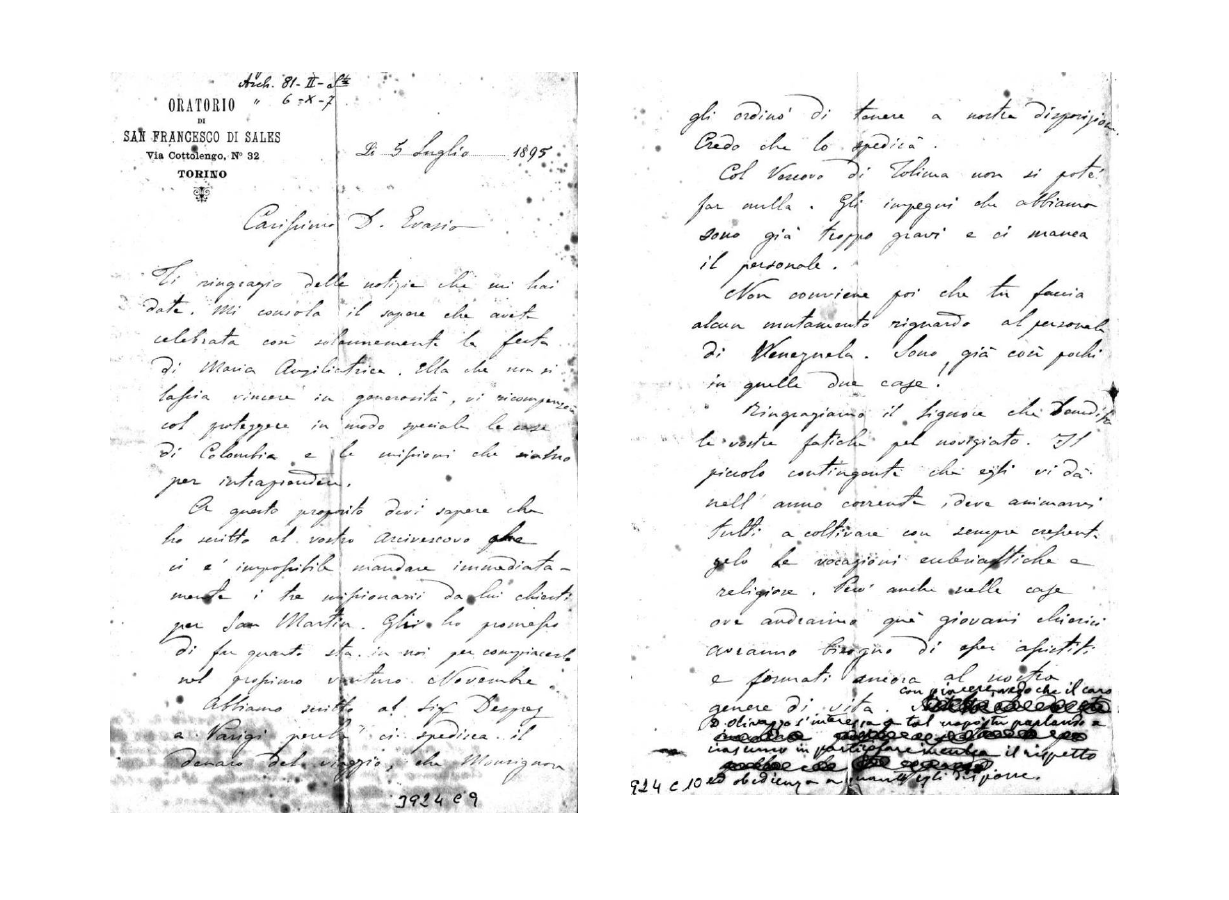 Arch. 81-II-
" 6-X-7
ORATORIO
DI
SAN FRANCESCO DI SALES
Via Cottolengo, N° 32
TORINO
Li 5 Luglio 1895
Carissimo D. Evasio
Ti ringrazio delle notizie che mi hai
date. Mi consola il sapere che avete
celebrata così solennemente la festa
di Maria Ausiliatrice. Ella che non si
lascia vincere in generosità, vi ricompenserà
col proteggere in modo speciale le case
di Colombia e le missioni che
per intraprendere.
A questo proposito devi sapere che
ho scritto al vostro Arcivescovo che
ci è impossibile mandare immediata-
mente i tre missionarii da lui chiesti
per San Martin. Gli ho promesso
di far quanto sta in noi per compiacerlo
nel prossimo venturo Novembre.
Abbiamo scritto al Sig. Desprez
a Parigi perchè ci spedisca il
denaro del viaggio, che Monsignore
3924 C 9
gli ordinò di tenere a nostra disposizione.
Credo che lo spedirà.
Col Vescovo di Tolima non si potè
far nulla. Gli impegni che abbiamo
sono già troppo gravi e ci manca
il personale.
Non conviene poi che tu faccia
alcun mutamento riguardo al personale
di Venezuela. Sono già così pochi
in quelle due case!
Ringraziamo il Signore che benedisse
le vostre fatiche pel noviziato. Il
piccolo contingente che egli vi dà
nell'anno corrente, deve animarvi
tutti a coltivare con sempre crescente
zelo le vocazioni ecclesiastiche e
religiose. Però anche nelle case
ove andranno quei giovani chierici
avranno bisogno di esser assistiti
e formati ancora al nostro
genere di vita. con piacere vedo che il caro
D. Olivazzo s'interessa a tal uopo
in particolare il rispetto
ed obbedienza a quanto egli dispone.
924 C 10